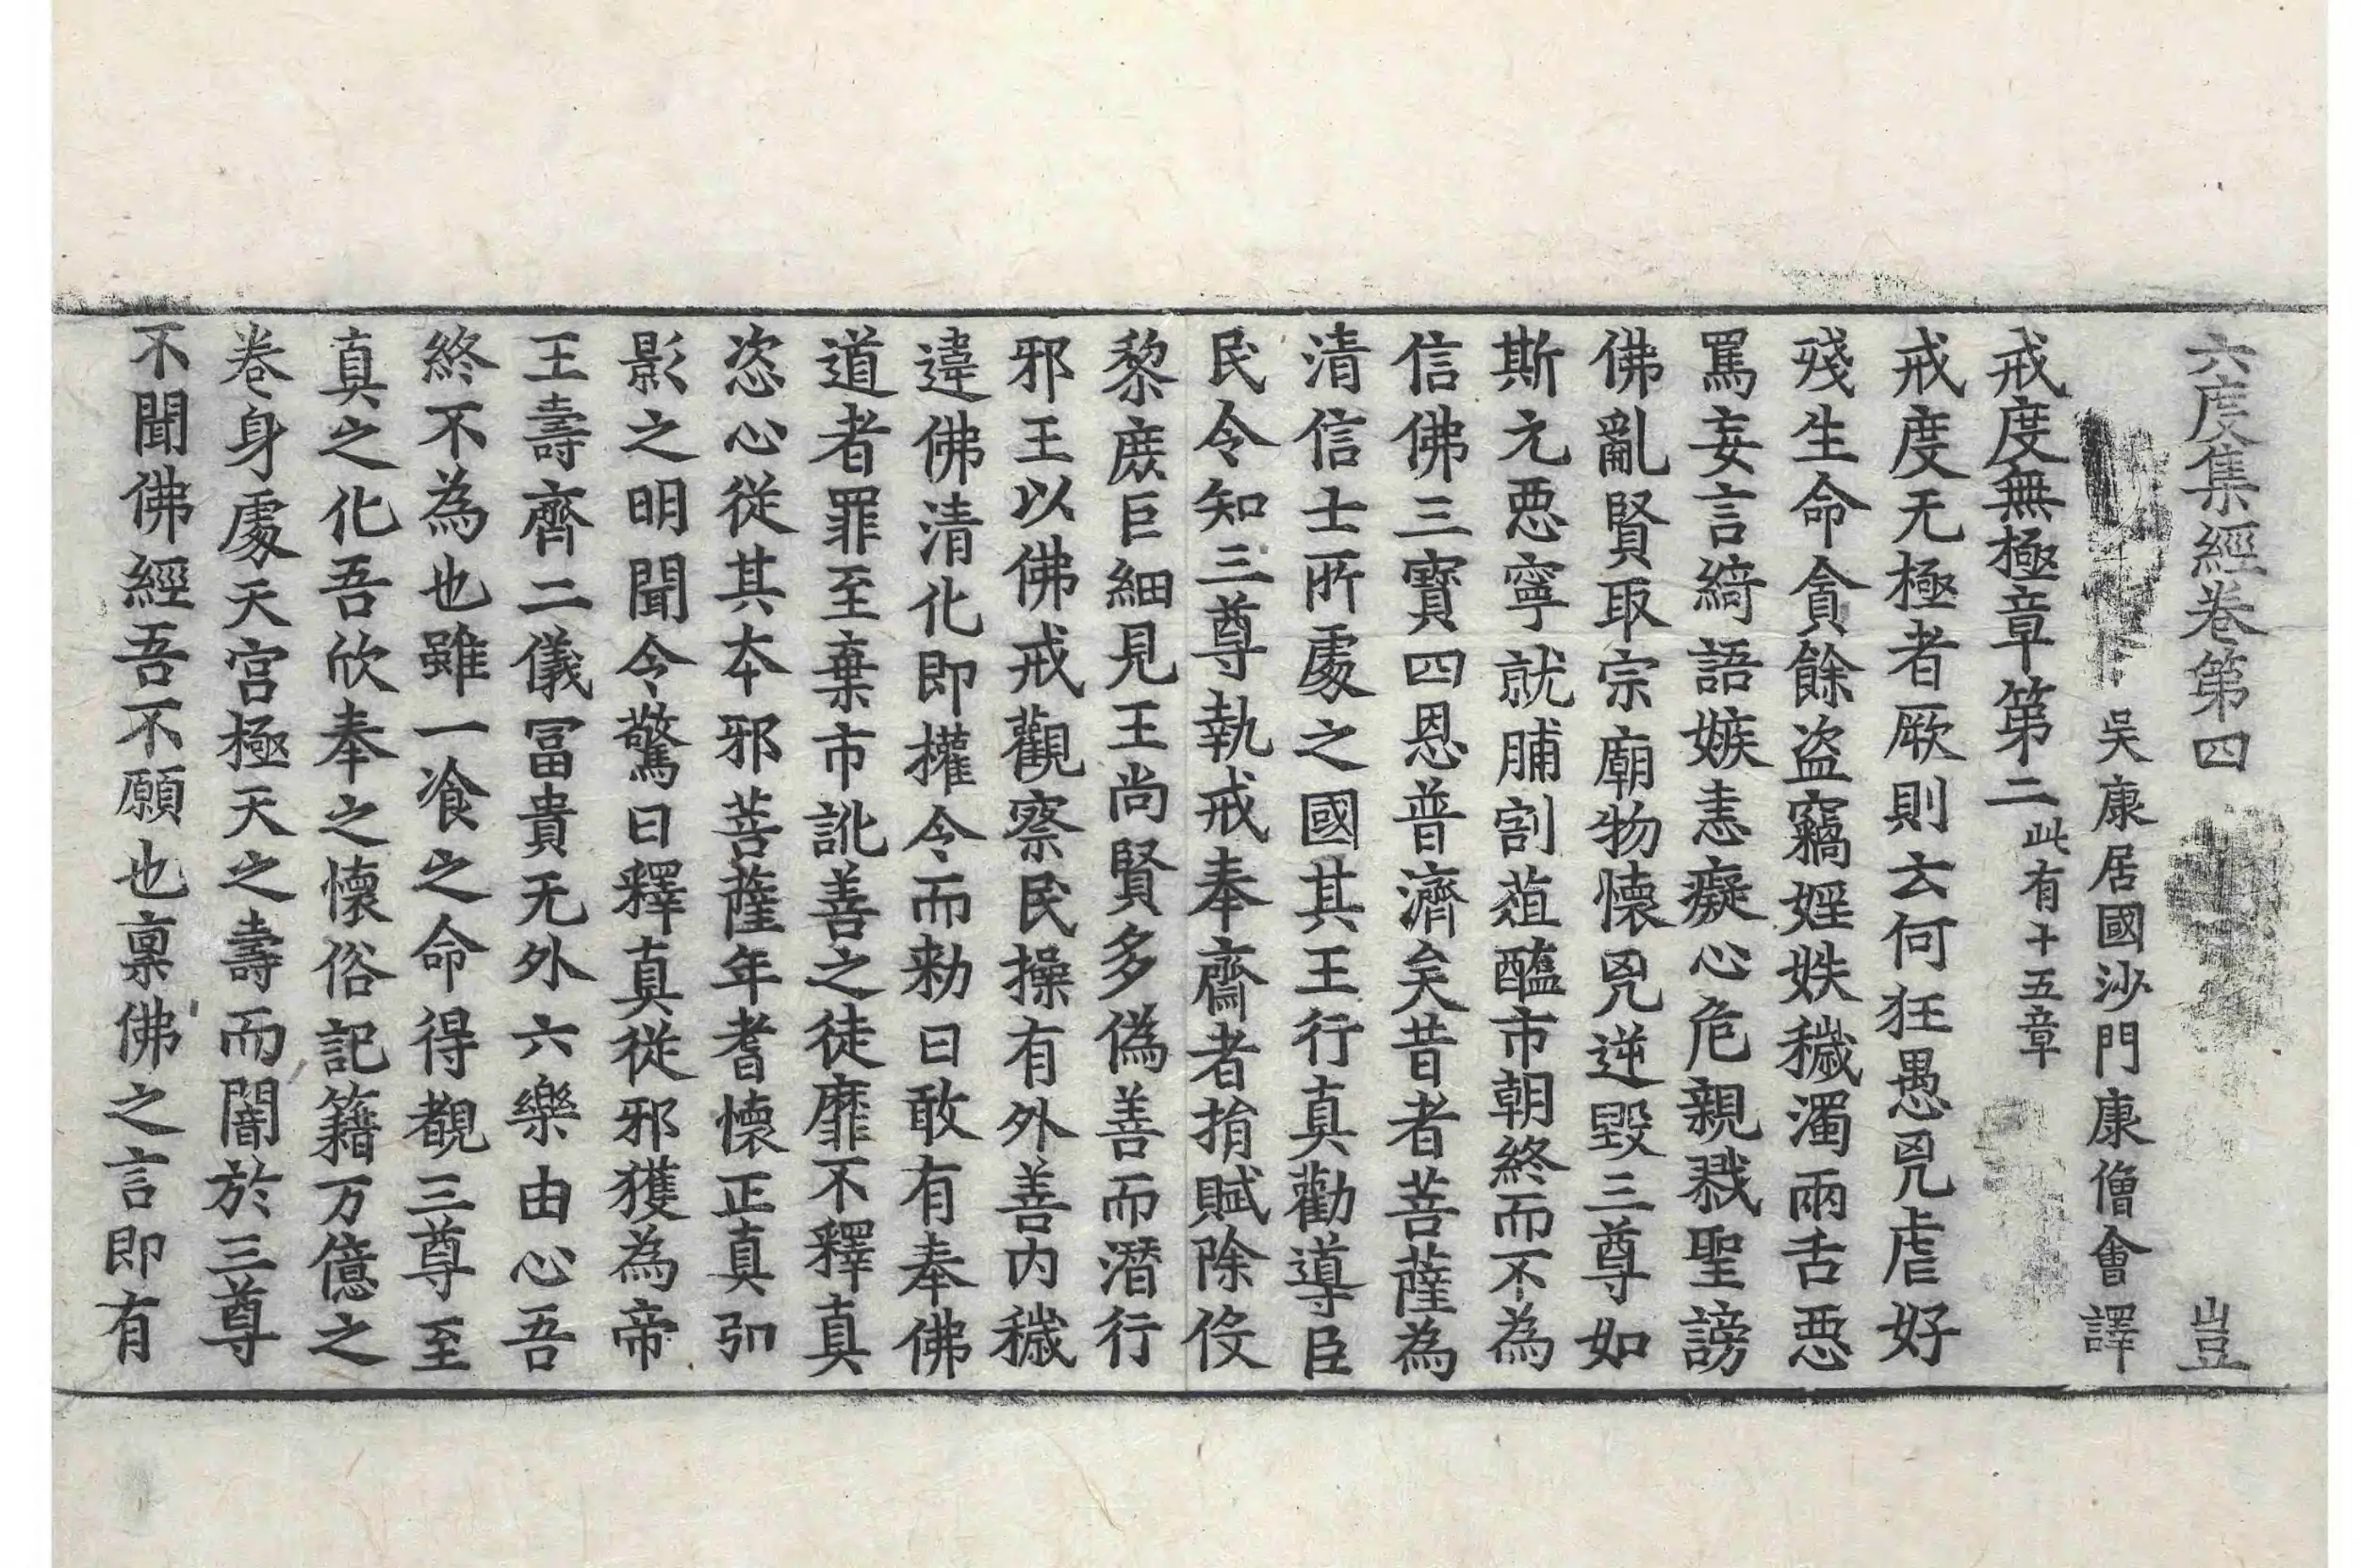 六度集經卷第四 豈
吳康居國沙門康僧會譯
戒度無極章第二 此有十五章
戒度无極者厥則云何狂愚㓙虐好
殘生命貪餘盜竊婬妷穢濁兩舌惡
罵妄言綺語嫉恚癡心危親戮聖謗
佛亂賢取宗廟物懷㓙逆毀三尊如
斯元惡寧就脯割葅醢市朝終而不為
信佛三寶四恩普濟矣昔者菩薩為
清信士所處之國其王行真勸導臣
民令知三尊執戒奉齋者捐賦除役
黎庶巨細見王尚賢多偽善而潛行
邪王以佛戒觀察民操有外善内穢
違佛清化即權令而勑曰敢有奉佛
道者罪至棄市訛善之徒靡不釋真
恣心從其本邪菩薩年耆懷正真弘
影之明聞令驚曰釋真從邪獲為帝
王壽齊二儀冨貴无外六樂由心吾
終不為也雖一飡之命得覩三尊至
真之化吾欣奉之懷俗記籍万億之
卷身處天宮極天之壽而闇於三尊
不聞佛經吾不願也稟佛之言即有